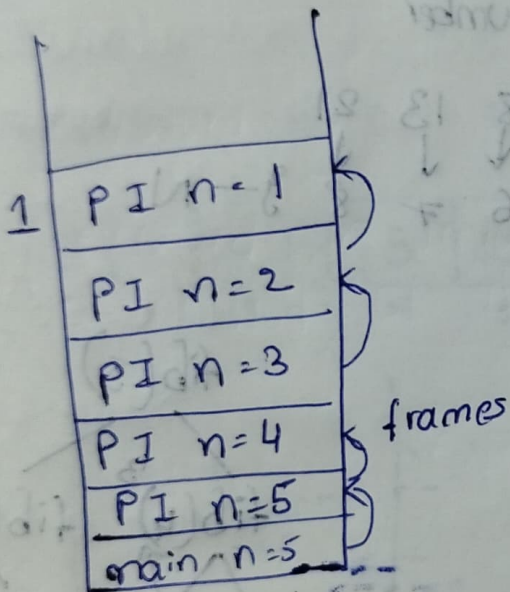 1
PI n = 1
PI n = 2
PI n = 3
PI n = 4
PI n = 5
main n = 5
frames